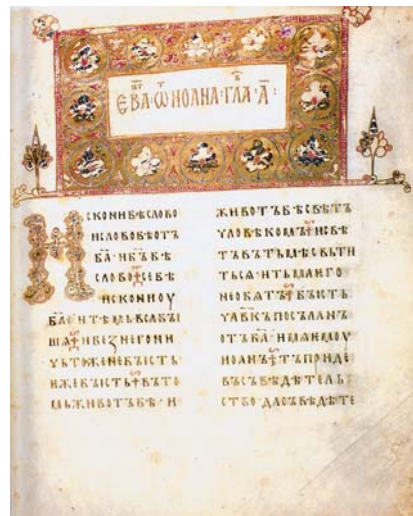 ЕВА · ѾИОАНА · ГЛА · А :
ИСКОНИБѢСЛОВО
ИСЛОВОБѢОТЪ
БА · ИБЪБѢ
СЛОВО СЕБѢ
ИСКОНИОУ
БА ИТѢМЬВСѦБꙐ
ШѦ ИБЕЗНЕГОНИ
ЧЬТОЖЕНЕБꙐСТЬ ·
ѤЖЕБꙐСТЬ ВЪТО
МЬЖИВОТЪБѢ · И
ЖИВОТЪБѢСВѢТЪ
ЧЛОВѢКОМЪ ИСВѢ
ТЪВЪТЬМѢСВЬТИ
ТЬСѦ · ИТЬМАѤГО
НЕОБѦТЪ БꙐСТЬ
ЧЛВКЪПОСЪЛАНЪ
ОТЪБА · ИМѦѤМОУ
ИОАНЪ ТЪПРИДЕ
ВЪСЪВѢДѢТЕЛЬ
СТВО · ДАСЪВѢДѢТЕ